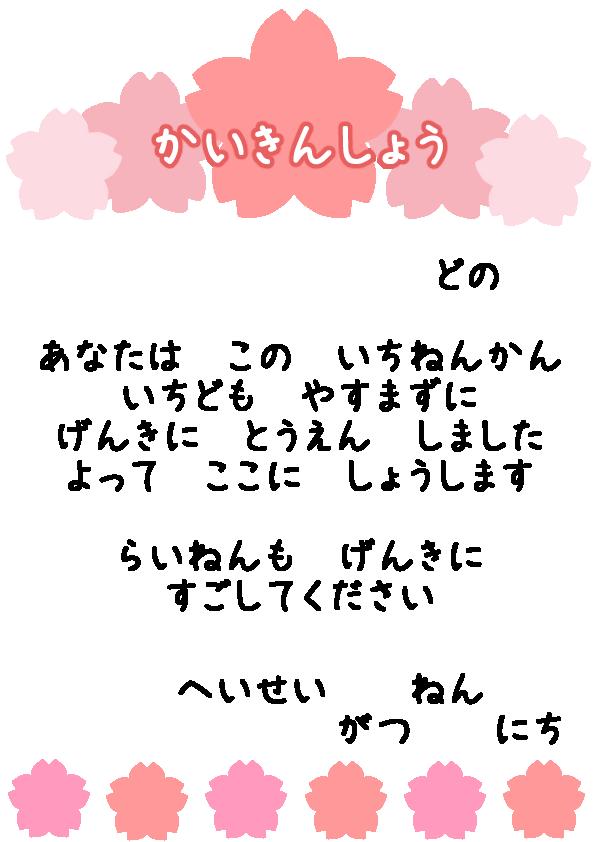 かいきんしょう
どの
あなたは　この　いちねんかん
いちども　やすまずに
げんきに　とうえん　しました
よって　ここに　しょうします
らいねんも　げんきに
すごしてください
へいせい　　ねん
がつ　　にち